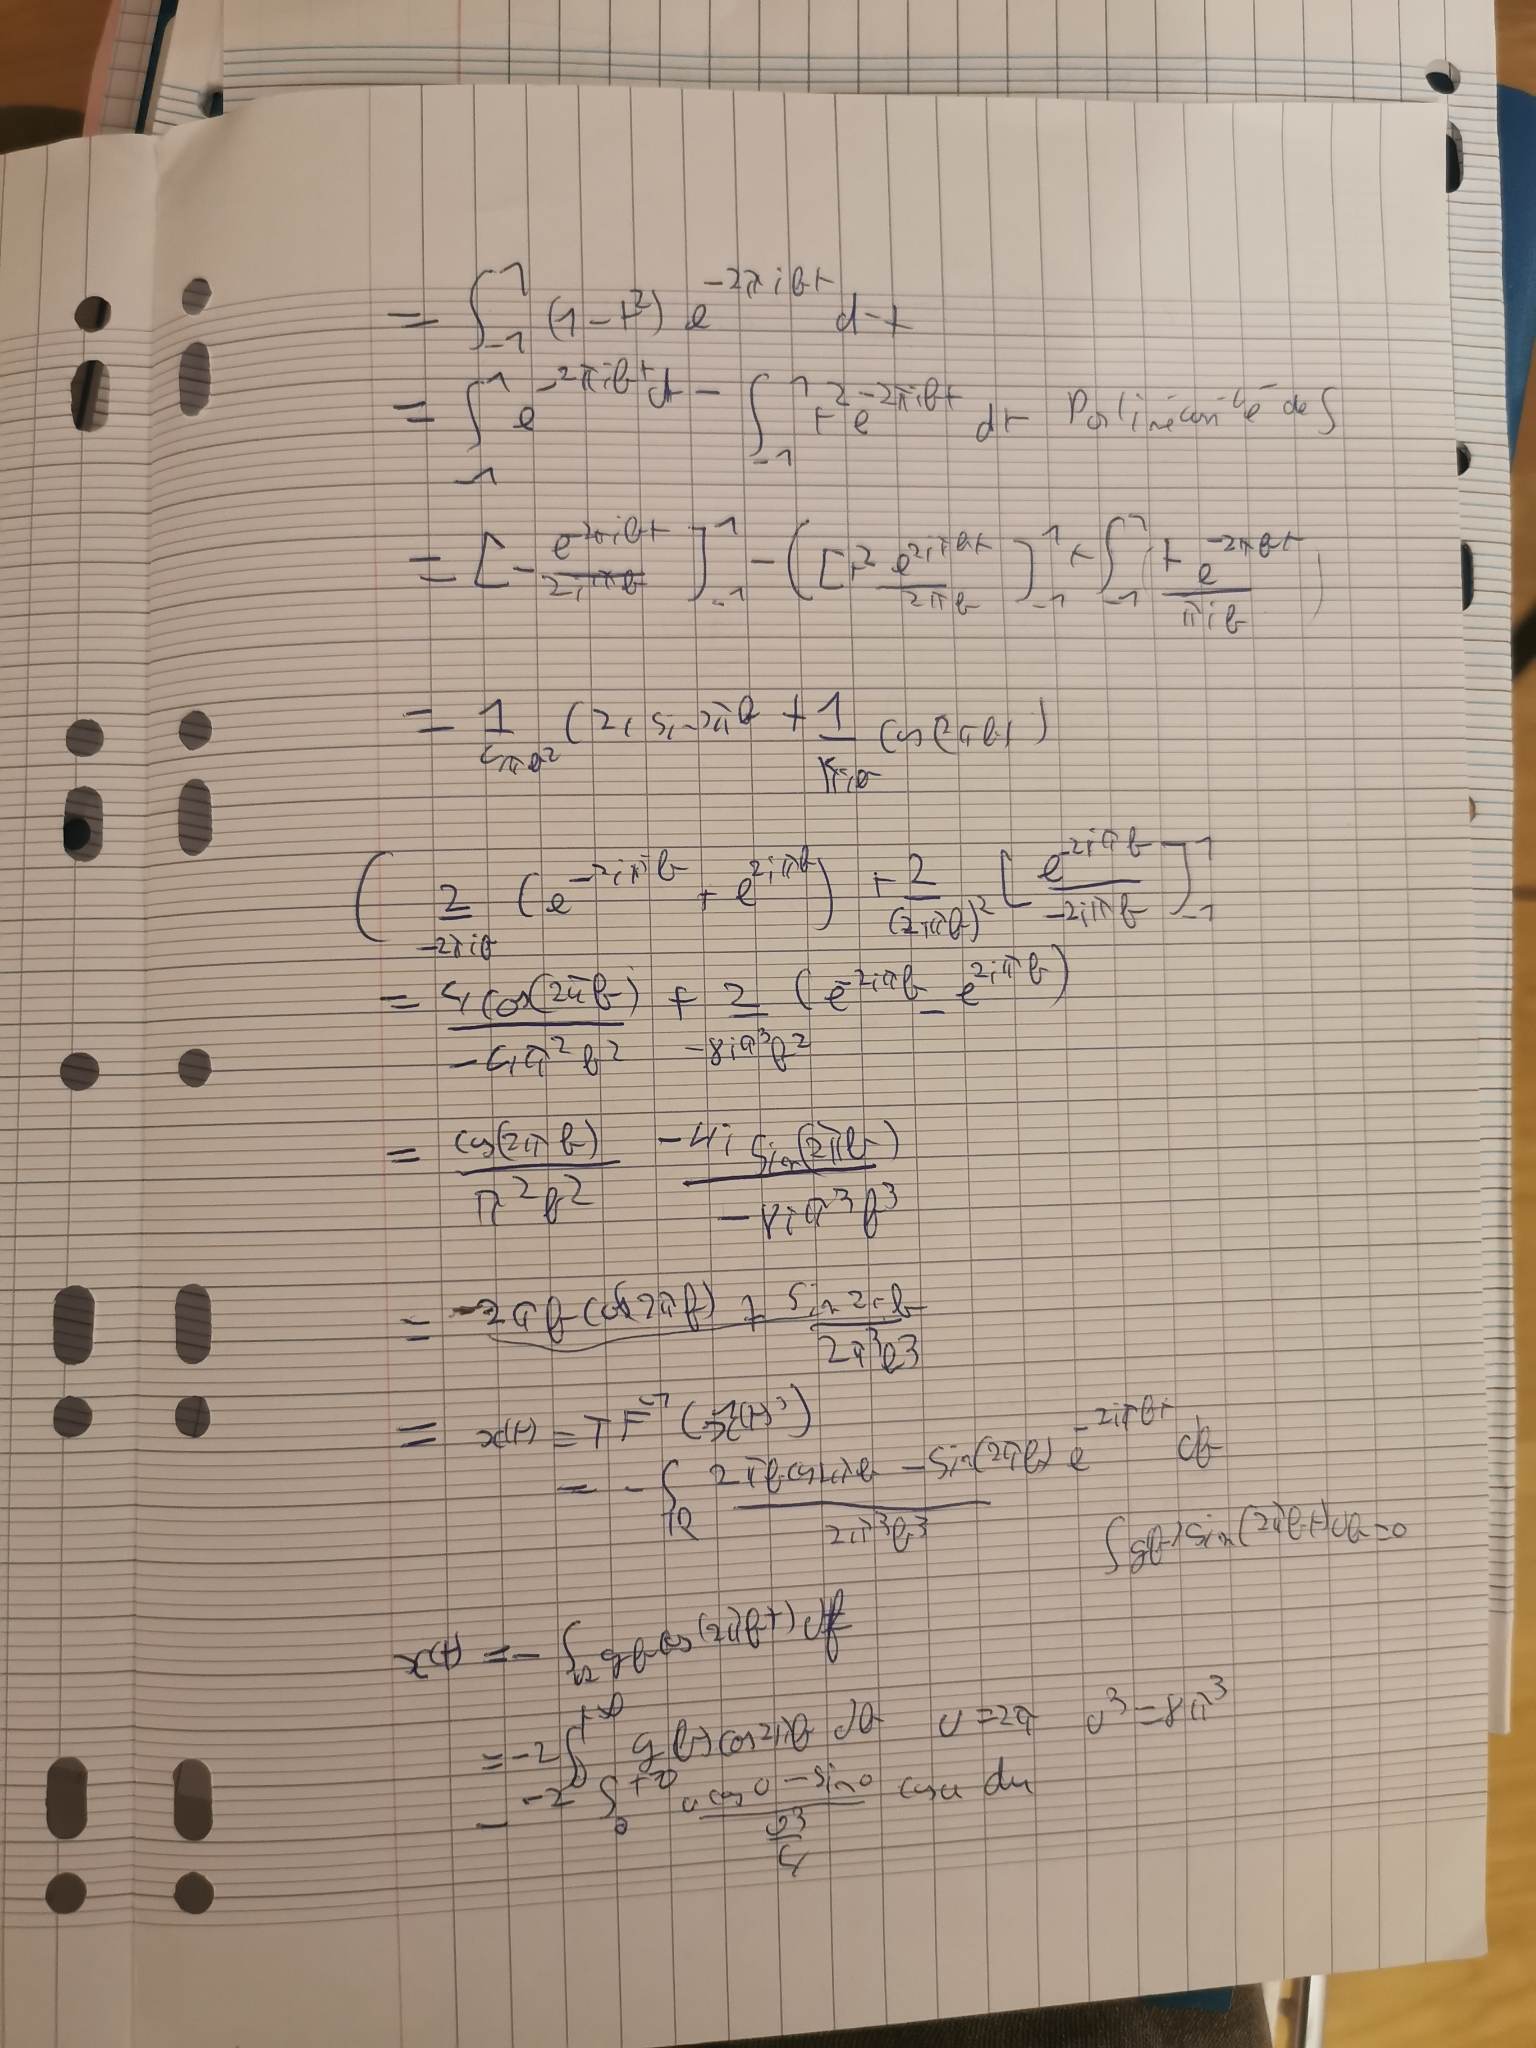 = ∫_{-1}^{1} (1 - t²) e^{-2πift} dt
= ∫_{-1}^{1} e^{-2πift} dt - ∫_{-1}^{1} t² e^{-2πift} dt Par linéarité de ∫
= [ - e^{-2πift} / 2iπf ]_{-1}^{1} - ( [ t² e^{2iπft} / 2πf ]_{-1}^{1} + ∫_{-1}^{1} t e^{-2πft} / πif )
= 1 / 4πf² ( 2i sin 2πf + 1 / πif cos(2πf) )
( 2 / -2πif ( e^{-2iπf} + e^{2iπf} ) + 2 / (2iπf)² [ e^{-2iπf} / -2iπf ]_{-1}^{1}
= 4 cos(2πf) / -4π²f² + 2 / -8iπ³f² ( e^{-2iπf} - e^{2iπf} )
= cos(2πf) / π²f² -4i sin(2πf) / -8iπ³f³
= -2πf cos 2πf + sin 2πf / 2π³f³
= x(t) = TF^{-1} ( )
= - ∫_ℝ 2πf cos 2πf - sin(2πf) / 2π³f³ e^{-2iπft} df
∫ g(f) sin(2πft) df = 0
x(t) = - ∫_ℝ g f cos(2πft) df
= -2 ∫_0^{+∞} g(f) cos 2πf df u = 2π u³ = 8π³
= -2 ∫_0^{+∞} u cos u - sin u / u³/4 cos u du